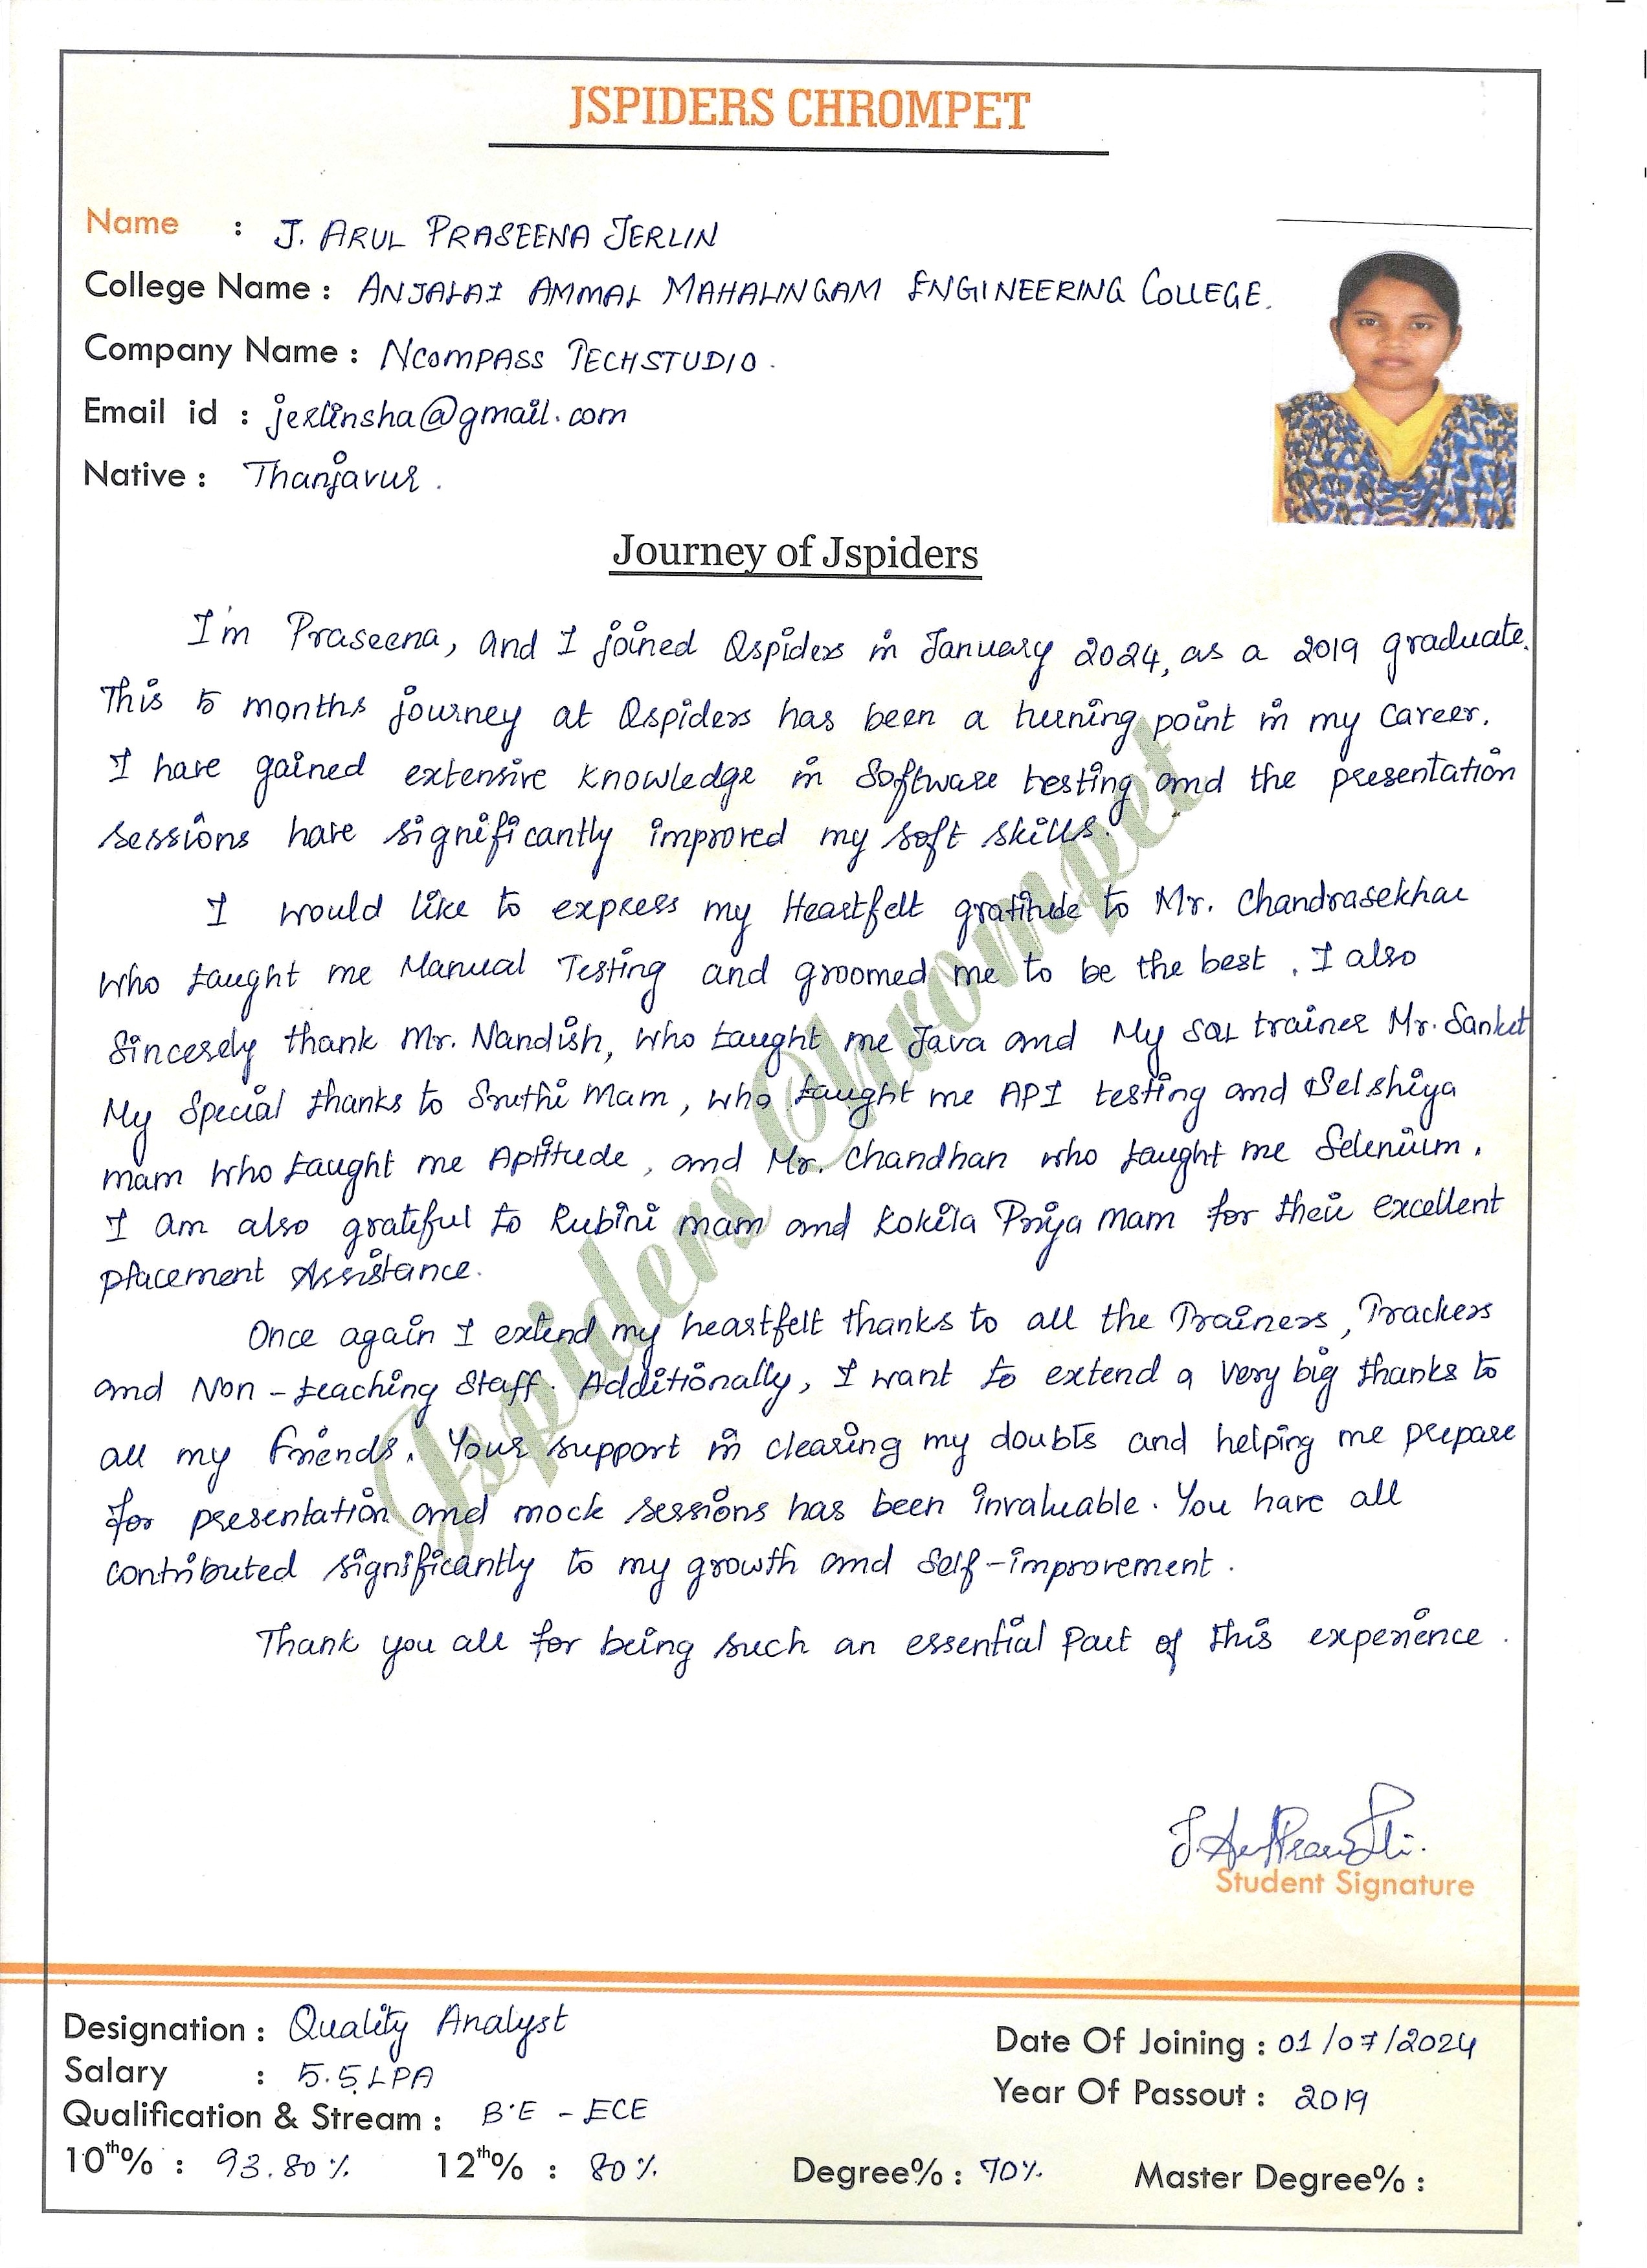 JSPIDERS CHROMPET
Name : J. ARUL PRASEENA JERLIN
College Name : ANJALAI AMMAL MAHALINGAM ENGINEERING COLLEGE.
Company Name : NCOMPASS TECHSTUDIO.
Email id : jerlinsha@gmail.com
Native : Thanjavur.
Journey of Jspiders
I'm Praseena, and I joined Qspiders in January 2024, as a 2019 graduate.
This 5 months journey at Qspiders has been a turning point in my career.
I have gained extensive knowledge in Software testing and the presentation
sessions have significantly improved my soft skills.
I would like to express my Heartfelt gratitude to Mr. Chandrasekhar
who taught me Manual Testing and groomed me to be the best. I also
Sincerely thank Mr. Nandish, who taught me Java and My SQL trainer Mr. Sanket
My Special thanks to Sruthi Mam, who taught me API testing and Selshiya
mam who taught me Aptitude, and Mr. Chandhan who taught me Selenium.
I am also grateful to Rubini mam and Kokila Priya Mam for their excellent
placement Assistance.
Once again I extend my heartfelt thanks to all the Trainers, Trackers
and Non - teaching Staff. Additionally, I want to extend a very big thanks to
all my friends. Your support in clearing my doubts and helping me prepare
for presentation and mock sessions has been invaluable. You have all
contributed significantly to my growth and self-improvement.
Thank you all for being such an essential part of this experience.
Jspiders Chrompet
Student Signature
Designation : Quality Analyst
Date Of Joining : 01/07/2024
Salary : 5.5 LPA
Year Of Passout : 2019
Qualification & Stream : B.E - ECE
10th% : 93.80% 12th% : 80% Degree% : 70% Master Degree% :